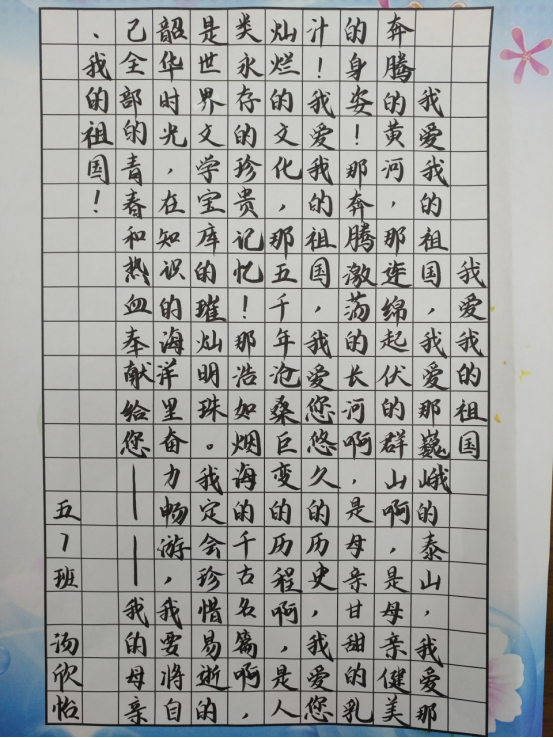 我爱我的祖国
我爱我的祖国，我爱那巍峨的泰山，我爱那
奔腾的黄河，那连绵起伏的群山啊，是母亲健美
的身姿！那奔腾激荡的长河啊，是母亲甘甜的乳
汁！我爱我的祖国，我爱您悠久的历史，我爱您
灿烂的文化，那五千年沧桑巨变的历程啊，是人
类永存的珍贵记忆！那浩如烟海的千古名篇啊，
是世界文学宝库的璀灿明珠。我定会珍惜易逝的
韶华时光，在知识的海洋里奋力畅游，我要将自
己全部的青春和热血奉献给您——我的母亲
、我的祖国！
五7班 汤欣怡